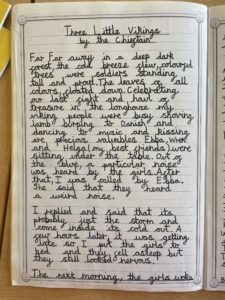 Three Little Vikings
by the Chieftain
Far far away in a deep dark
forest, the cold breeze slew, colourful
trees were soldiers standing
tall and proud. The leaves of all
colours, floated down. Celebrating
our last fight and haul of
treasure in the longhouse my
viking people were busy shoving
lamb burping to Danish and
dancing to music and kissing
are precious valuables. Ebba, Wren
and Helga, my best friends were
sitting under the table. Out of
the blue, a particular noise
was heard by the girls. After
that, I was called by Ebba.
She said that they heard
a weird noise.
I replied and said that its
probably just the storm and
come inside its cold out. A
few hours later, it was getting
late so I put the girls to
bed and they fell asleep but
they still looked nervous.
The next morning, the girls woke